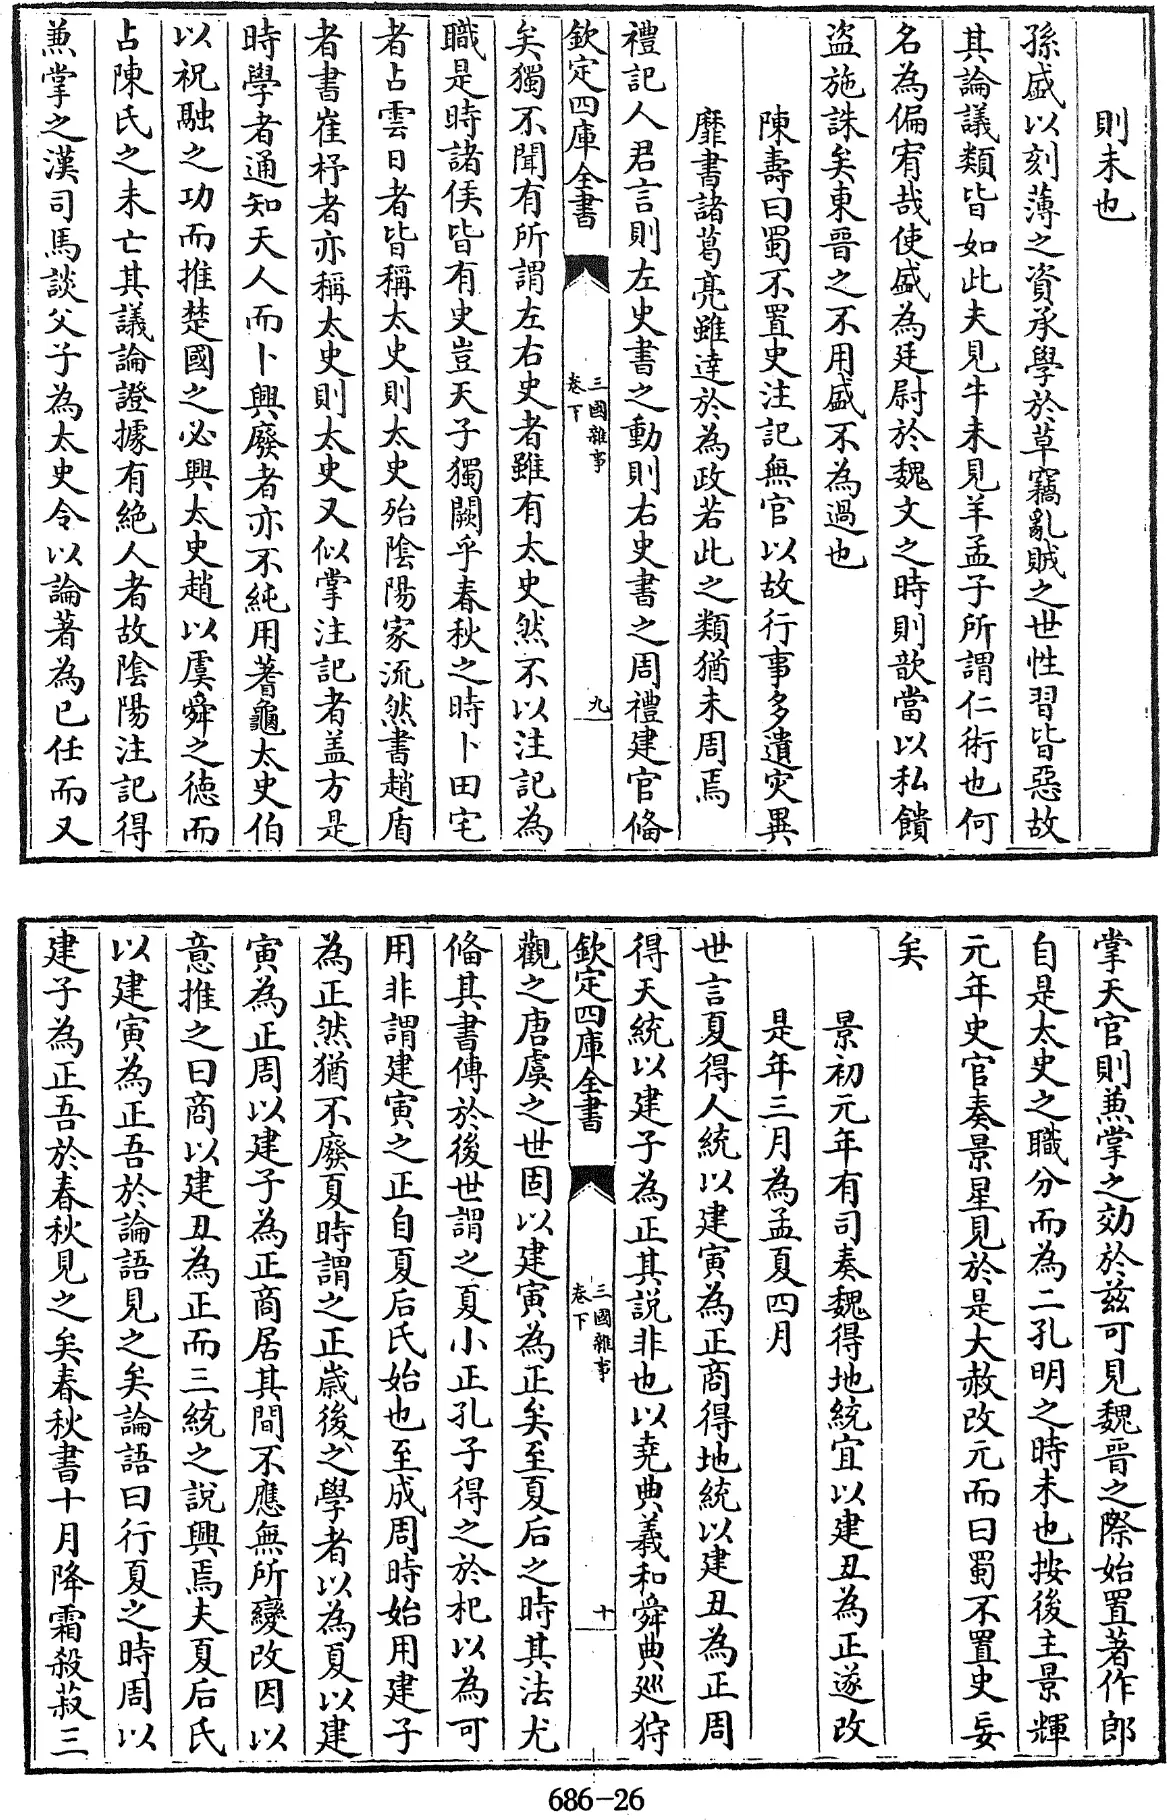 則未也
孫盛以刻薄之資承學於草竊亂賊之世性習皆惡故
其論議類皆如此夫見牛未見羊孟子所謂仁術也何
名為偏宥哉使盛為廷尉於魏文之時則歆當以私饋
盜施誅矣東晉之不用盛不為過也
陳壽曰蜀不置史注記無官以故行事多遺災異
靡書諸葛亮雖達於為政若此之類猶未周焉
禮記人君言則左史書之動則右史書之周禮建官俻
欽定四庫全書
三國雜事
卷下
九
矣獨不聞有所謂左右史者雖有太史然不以注記為
職是時諸侯皆有史豈天子獨闕乎春秋之時卜田宅
者占雲日者皆稱太史則太史殆陰陽家流然書趙盾
者書崔杼者亦稱太史則太史又似掌注記者盖方是
時學者通知天人而卜興廢者亦不純用蓍龜太史伯
以祝融之功而推楚國之必興太史趙以虞舜之德而
占陳氏之未亡其議論證據有絕人者故陰陽注記得
兼掌之漢司馬談父子為太史令以論著為已任而又
掌天官則兼掌之効於兹可見魏晉之際始置著作郎
自是太史之職分而為二孔明之時未也按後主景輝
元年史官奏景星見於是大赦改元而曰蜀不置史妄
矣
景初元年有司奏魏得地統宜以建丑為正遂改
是年三月為孟夏四月
世言夏得人統以建寅為正商得地統以建丑為正周
得天統以建子為正其説非也以堯典羲和舜典廵狩
欽定四庫全書
三國雜事
卷下
十
觀之唐虞之世固以建寅為正矣至夏后之時其法尤
俻其書傳於後世謂之夏小正孔子得之於杞以為可
用非謂建寅之正自夏后氏始也至成周時始用建子
為正然猶不廢夏時謂之正歲後之學者以為夏以建
寅為正周以建子為正商居其間不應無所變改因以
意推之曰商以建丑為正而三統之説興焉夫夏后氏
以建寅為正吾於論語見之矣論語曰行夏之時周以
建子為正吾於春秋見之矣春秋書十月降霜殺菽三
686-26